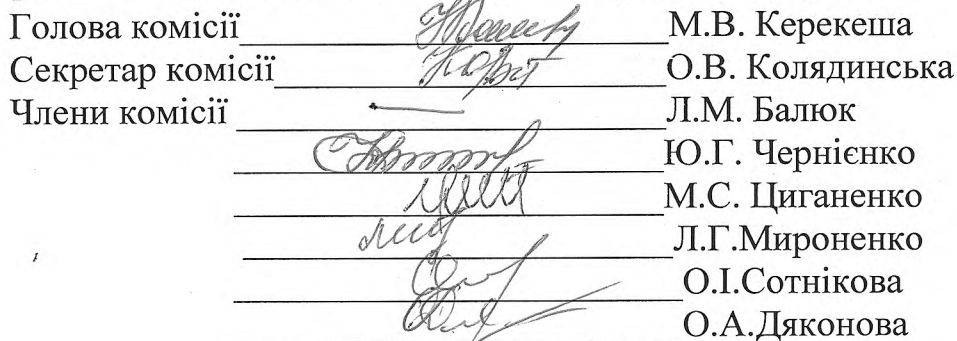 Голова комісії М.В. Керекеша
Секретар комісії О.В. Колядинська
Члени комісії Л.М. Балюк
Ю.Г. Чернієнко
М.С. Циганенко
Л.Г.Мироненко
О.І.Сотнікова
О.А.Дяконова